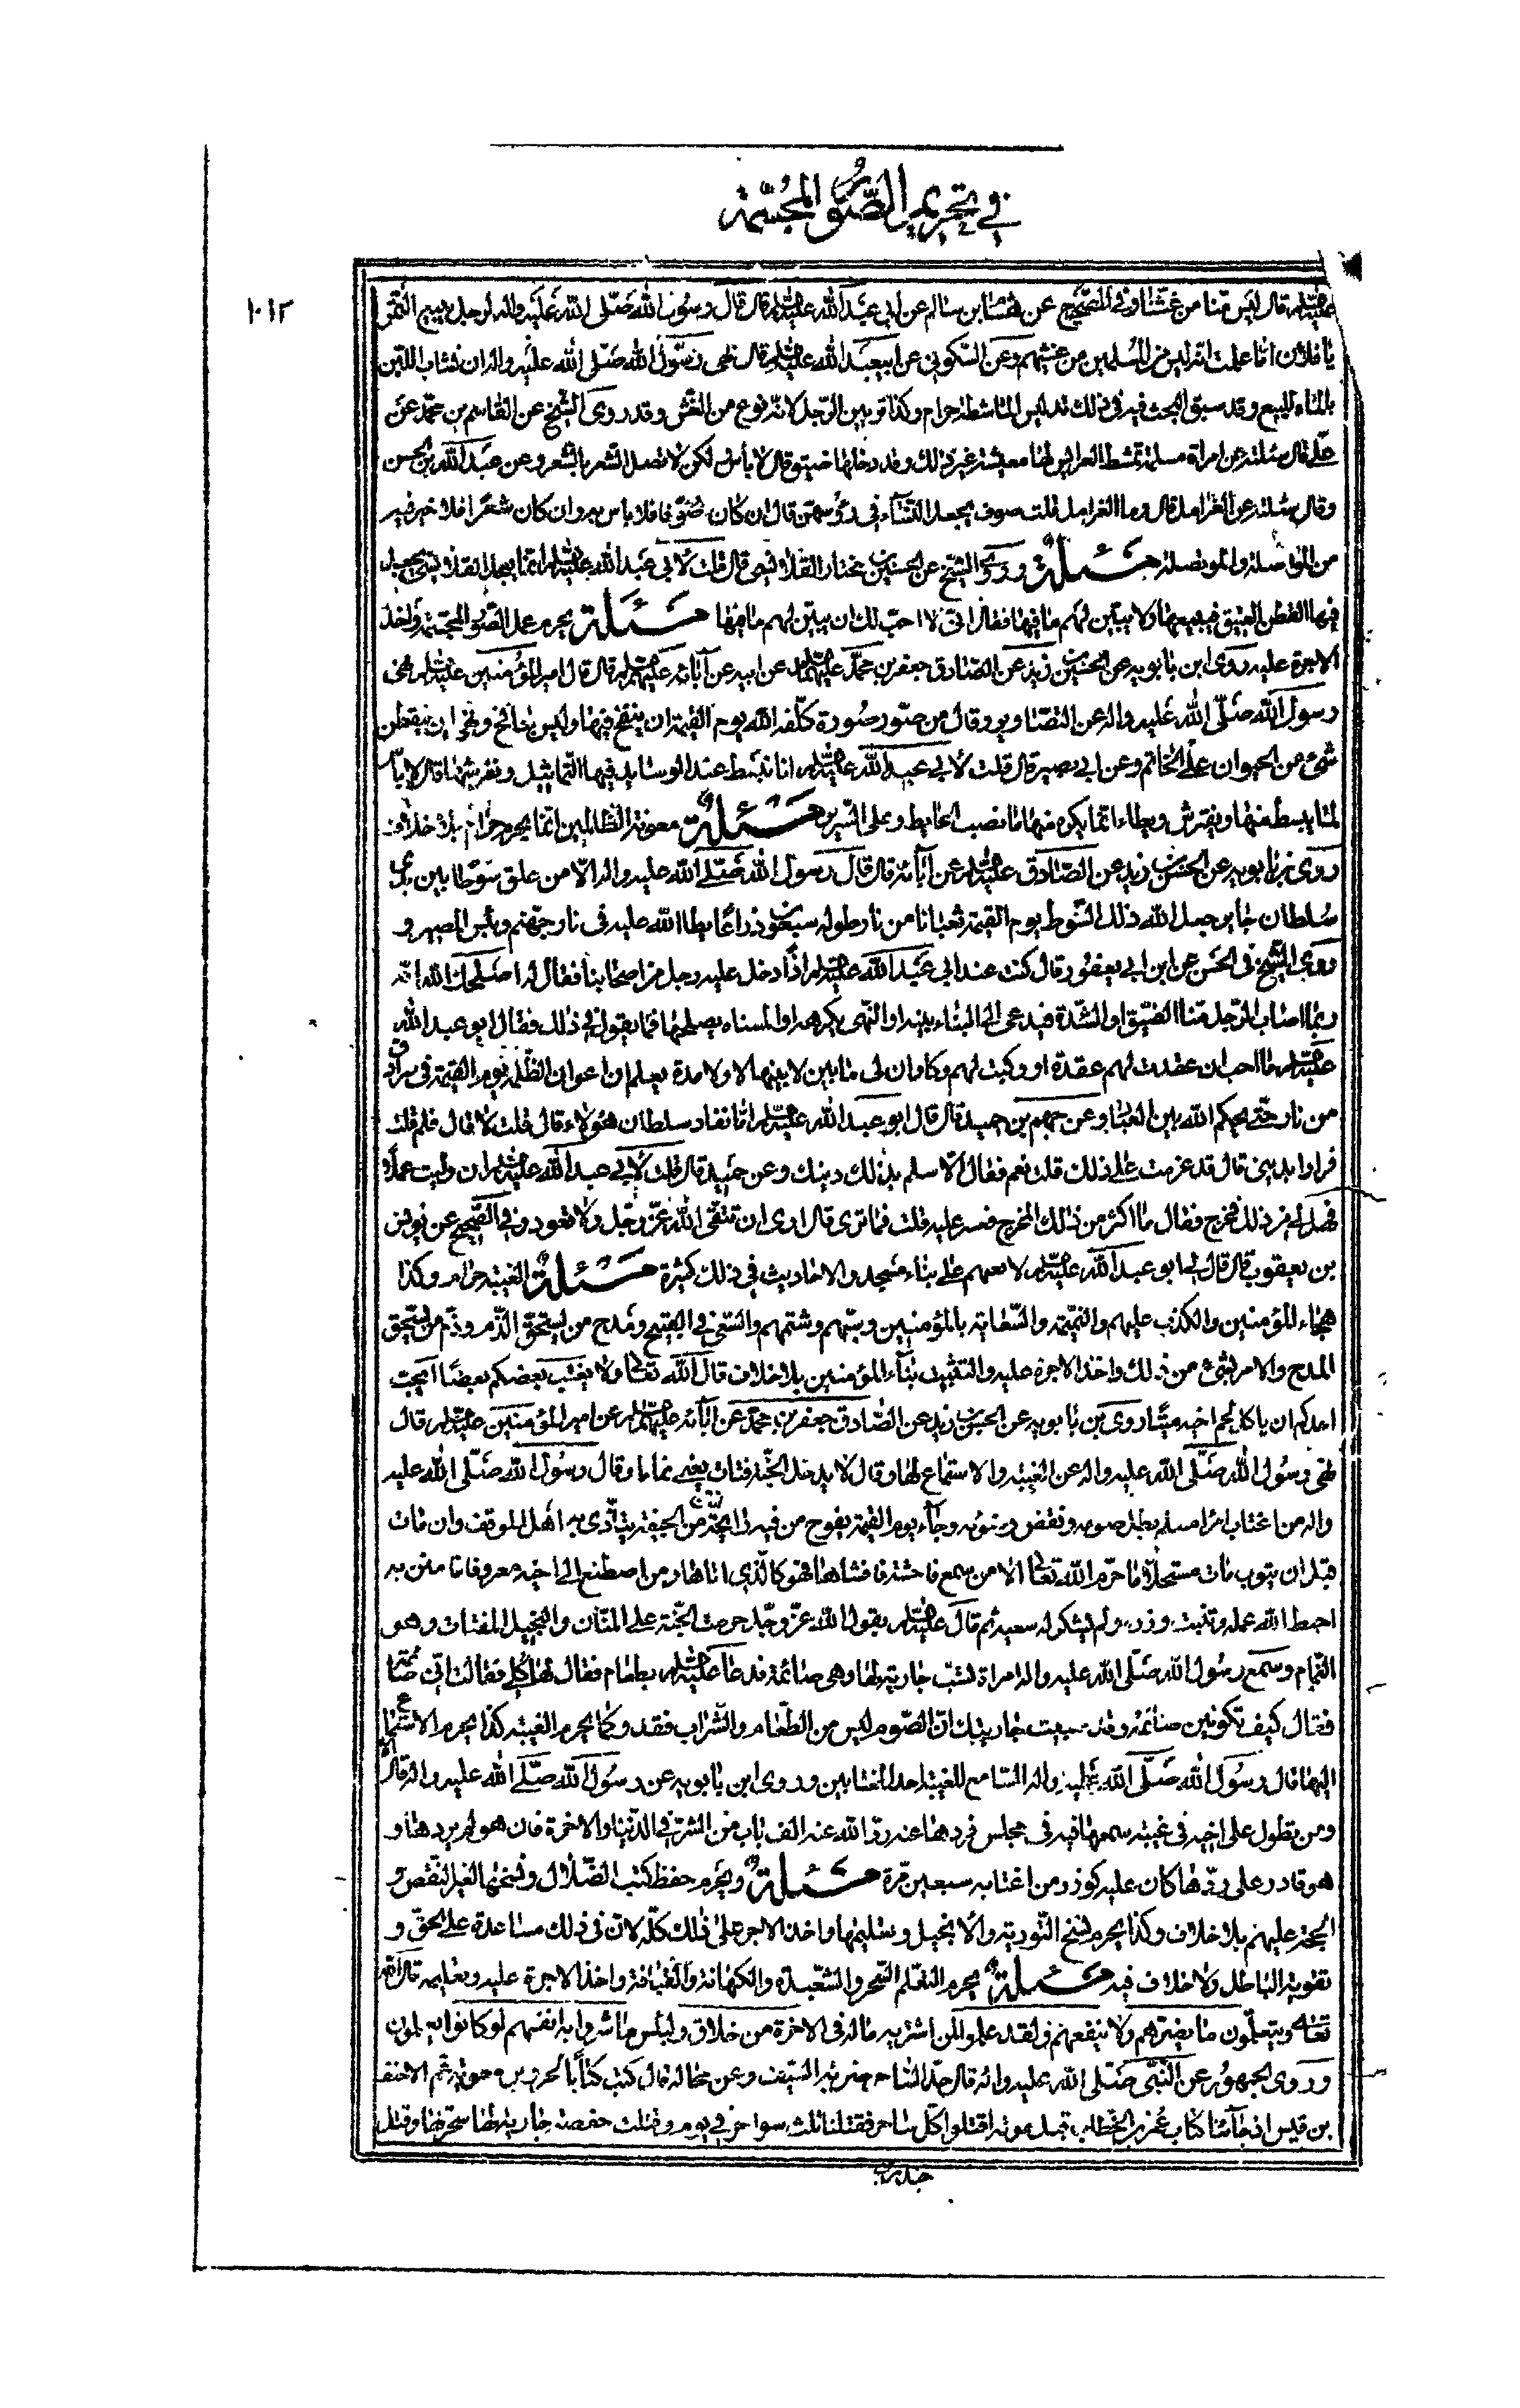 في تحريم الصور المجسمة
١٠١٢
عليه السلام قال ليس منا من غشنا وفي الصحيح عن هشام بن سالم عن ابي عبد الله عليه السلام قال قال رسول الله صلى الله عليه واله لرجل يبيع التمر
يا فلان اما علمت انه ليس من المسلمين من غشهم وعن السكوني عن ابيعبد الله عليه السلام قال نهى رسول الله صلى الله عليه واله ان يشاب اللبن
بالماء للبيع وقد سبق البحث فيه في ذلك تدليس الماشطة حرام وكذا تزيين الرجل لانه نوع من الغش وقد روى الشيخ عن القاسم بن محمد عن
علي قال سئلته عن امراة مسلمة تمشط العرايس لها معيشة غير ذلك وقد دخلها ضيق قال لا بأس لكن لا تصل الشعر بالشعر وعن عبد الله بن الحسن
وقال سئلته عن القرامل قال وما القرامل قلت صوف يجعله النساء في رؤسهن قال ان كان صوفا فلا باس به وان كان شعرا فلا خير فيه
من الواصلة والموتصلة مسئلة وروى الشيخ عن الحسين بن مختار القلانسي قال قلت لابي عبد الله عليه السلام انما يعمل القلانس يجعل
فيها القطن العتيق فيبيعها ولا يبين لهم ما فيها فقال اني لا احب لك ان يبين لهم ما فيها مسئلة يحرم عمل الصور المجسمة واخذ
الاجرة عليه روى ابن بابويه عن الحسين بن زيد عن الصادق جعفر بن محمد عليهما السلام عن ابيه عن آبائه عليهم السلام قال قال امير المؤمنين عليه السلام نهى
رسول الله صلى الله عليه واله عن التصاوير وقال من صور صورة كلفه الله يوم القيمة ان ينفخ فيها وليس بنافخ ونهى ان ينقش
شئ من الحيوان على الخاتم وعن ابي بصير قال قلت لابي عبد الله عليه السلام انا نبسط عندنا الوسايد فيها التماثيل ونفرشها قال لا باس
لما يبسط منها ويفترش ويطاء انما يكره منها ما نصب الحايط وعلى السرير مسئلة معونة الظالمين انما يحرم حرام بلا خلاف
روى بن بابويه عن الحسين بن زيد عن الصادق عليه السلام عن آبائه قال قال رسول الله صلى الله عليه واله الا من علق سوطا بين يدي
سلطان جاير جعل الله ذلك السوط يوم القيمة ثعبانا من نار طوله سبعون ذراعا يطا الله عليه في نار جهنم وبئس المصير و
روى الشيخ في الحسن عن ابن ابي يعفور قال كنت عند ابي عبد الله عليه السلام اذا دخل عليه رجل من اصحابنا فقال له اصلحك الله انه
ربما اصاب الرجل منا الضيق او الشدة فيدعى الى البناء يبنيه او النهر يكريه او المسناه يصلحها فما يقول في ذلك فقال ابو عبد الله
عليه السلام ما احب ان عقدت لهم عقدة او وكيت لهم وكاء وان لى ما بين لابتيها لا ولا مدة بعلم ان اعوان الظلمة يوم القيمة في سرادق
من نار حتى يحكم الله بين العباد وعن جهم بن حميد قال قال ابو عبد الله عليه السلام اما تغشى سلطان هؤلاء قال قلت لا قال فلم قلت
فرارا بديني قال قد عزمت على ذلك قلت نعم فقال الآن سلم لك دينك وعن حميد قال قلت لابي عبد الله عليه السلام ان وليت عملا
فهل لي من ذلك مخرج فقال ما اكثر من ذلك المخرج فعسر عليه قلت فما ترى قال ارى ان تتقى الله عز وجل ولا تعود وفي الصحيح عن يونس
بن يعقوب قال قال لي ابو عبد الله عليه السلام لا تعنهم على بناء مسجد والاحاديث في ذلك كثيرة مسئلة الغيبة حرام وكذا
هجاء المؤمنين والكذب عليهم والنميمة والسعاية بالمؤمنين وسبهم وشتمهم والسعى في القبيح ومدح من يستحق الذم وذم من يستحق
المدح والامر بشئ من ذلك واخذ الاجرة عليه والتشبيب بنساء المؤمنين بلا خلاف قال الله تعالى ولا يغتب بعضكم بعضا ايحب
احدكم ان ياكل لحم اخيه ميتا روى بن بابويه عن الحسين بن زيد عن الصادق جعفر بن محمد عن آبائه عليهم السلام عن امير المؤمنين عليه السلام قال
نهى رسول الله صلى الله عليه واله عن الغيبة والاستماع لها وقال لا يدخل الجنة قتات يعني نماما وقال رسول الله صلى الله عليه
واله من اغتاب امرا مسلم بطل صومه ونقض وضوئه وجاء يوم القيمة يفوح من فيه رائحة انتن من الجيفة يتأذى به اهل الموقف وان مات
قبل ان يتوب مات مستحلا ما حرم الله تعالى الا من سمع فاحشة فافشاها فهو كالذي اتاها ومن اصطنع الى اخيه معروفا فامتن به
احبط الله عمله وثبت وزره ولم يشكر له سعيه ثم قال عليه السلام يقول الله عز وجل حرمت الجنة على المنان والبخيل والقتات وهو
النمام وسمع رسول الله صلى الله عليه واله امراة تسب جارية لها وهى صائمة فدعا عليه السلام بطعام فقال لها كلي فقالت اني صائمة
فقال كيف تكونين صائمة وقد سببت جاريتك ان الصوم ليس من الطعام والشراب فقد وكما يحرم الغيبة كذا يحرم الاستماع
اليها قال رسول الله صلى الله عليه واله السامع للغيبة احد المغتابين وروى ابن بابويه عن رسول الله صلى الله عليه واله قال الا
ومن تطول على اخيه في غيبة سمعها فيه في مجلس فردها عنه رد الله عنه الف باب من الشر في الدنيا والاخرة فان هو لم يردها و
هو قادر على ردها كان عليه كوزر من اغتابه سبعين مرة مسئلة ويحرم حفظ كتب الضلال ونسخها لغير النقض و
الحجة عليهم بلا خلاف وكذا يحرم نسخ التورية والانجيل وتعليمها واخذ الاجر على ذلك كله لان في ذلك مساعدة على الحق و
تقوية الباطل ولا خلاف فيه مسئلة يحرم التعلم السحر والشعبدة والكهانة والقيافة واخذ الاجرة عليه وتعليمه قال الله
تعالى ويتعلمون ما يضرهم ولا ينفعهم ولقد علموا لمن اشتريه ماله في الاخرة من خلاق ولبئس ما شروا به انفسهم لو كانوا يعلمون
وروى الجمهور عن النبي صلى الله عليه واله قال حد الساحر ضربة السيف وعن بجالة قال كنت كاتبا لحر بن معوية عم الاحنف
بن قيس اذ جائنا كتاب عمر بن الخطاب قبل موته اقتلوا كل ساحر فقتلنا ثلث سواحر في يوم وقتلت حفصة جارية لها سحرتها وقتل
جندب